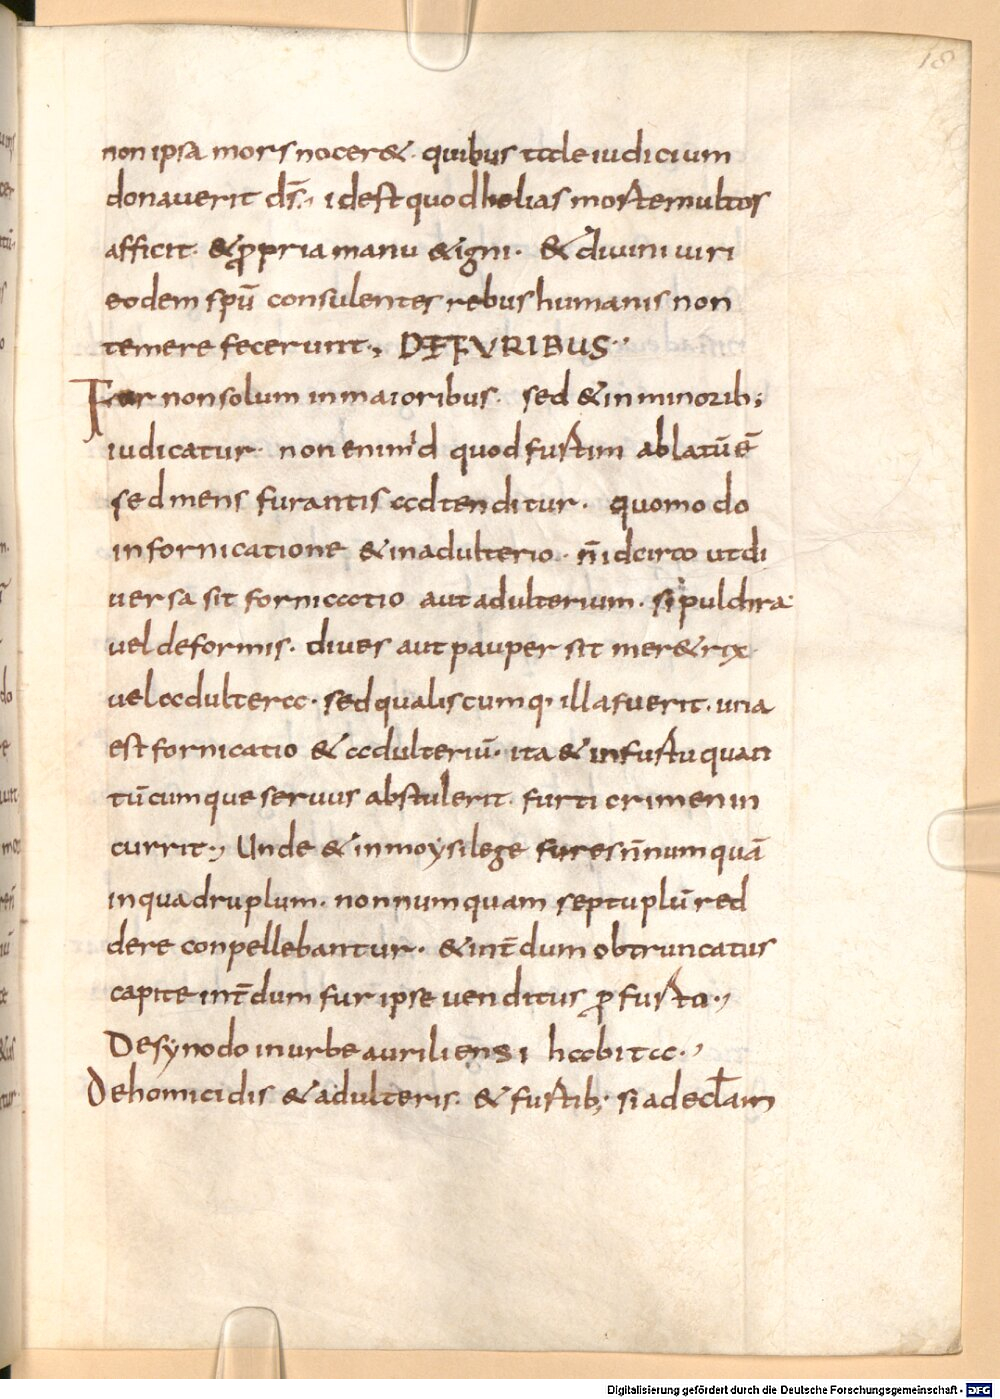 18
non ipsa mors nocer&. quibus tale iudicium
donauerit ds̄., idest quod helias morte multos
afficit. & ꝓpria manu & igni. & diuini uiri
eodem spū consulentes rebus humanis non
temere fecerunt., DE FURIBUS.,
Fur non solum in maioribus. sed & in minorib;
iudicatur. non enim id quod furtim ablatū ē
sed mens furantis adtenditur. quomodo
in fornicatione & in adulterio. n̄ idcirco ut di
uersa sit fornicatio aut adulterium. si pulchra
uel deformis. diues aut pauper sit mer&rix
uel adultera. sed qualiscumq; illa fuerit. una
est fornicatio & adulteriū. ita & in furtu quan
tūcumque seruus abstulerit. furti crimen in
currit., Unde & in moysi lege fures n̄numquā
in quadruplum. nonnumquam septuplū red
dere conpellebantur. & int̄dum obtruncatus
capite int̄dum fur ipse uenditus ꝓ furto.,
De synodo in urbe auriliensi habita.,
De homicidis & adulteris. & furtib; si ad eclam
Digitalisierung gefördert durch die Deutsche Forschungsgemeinschaft - DFG